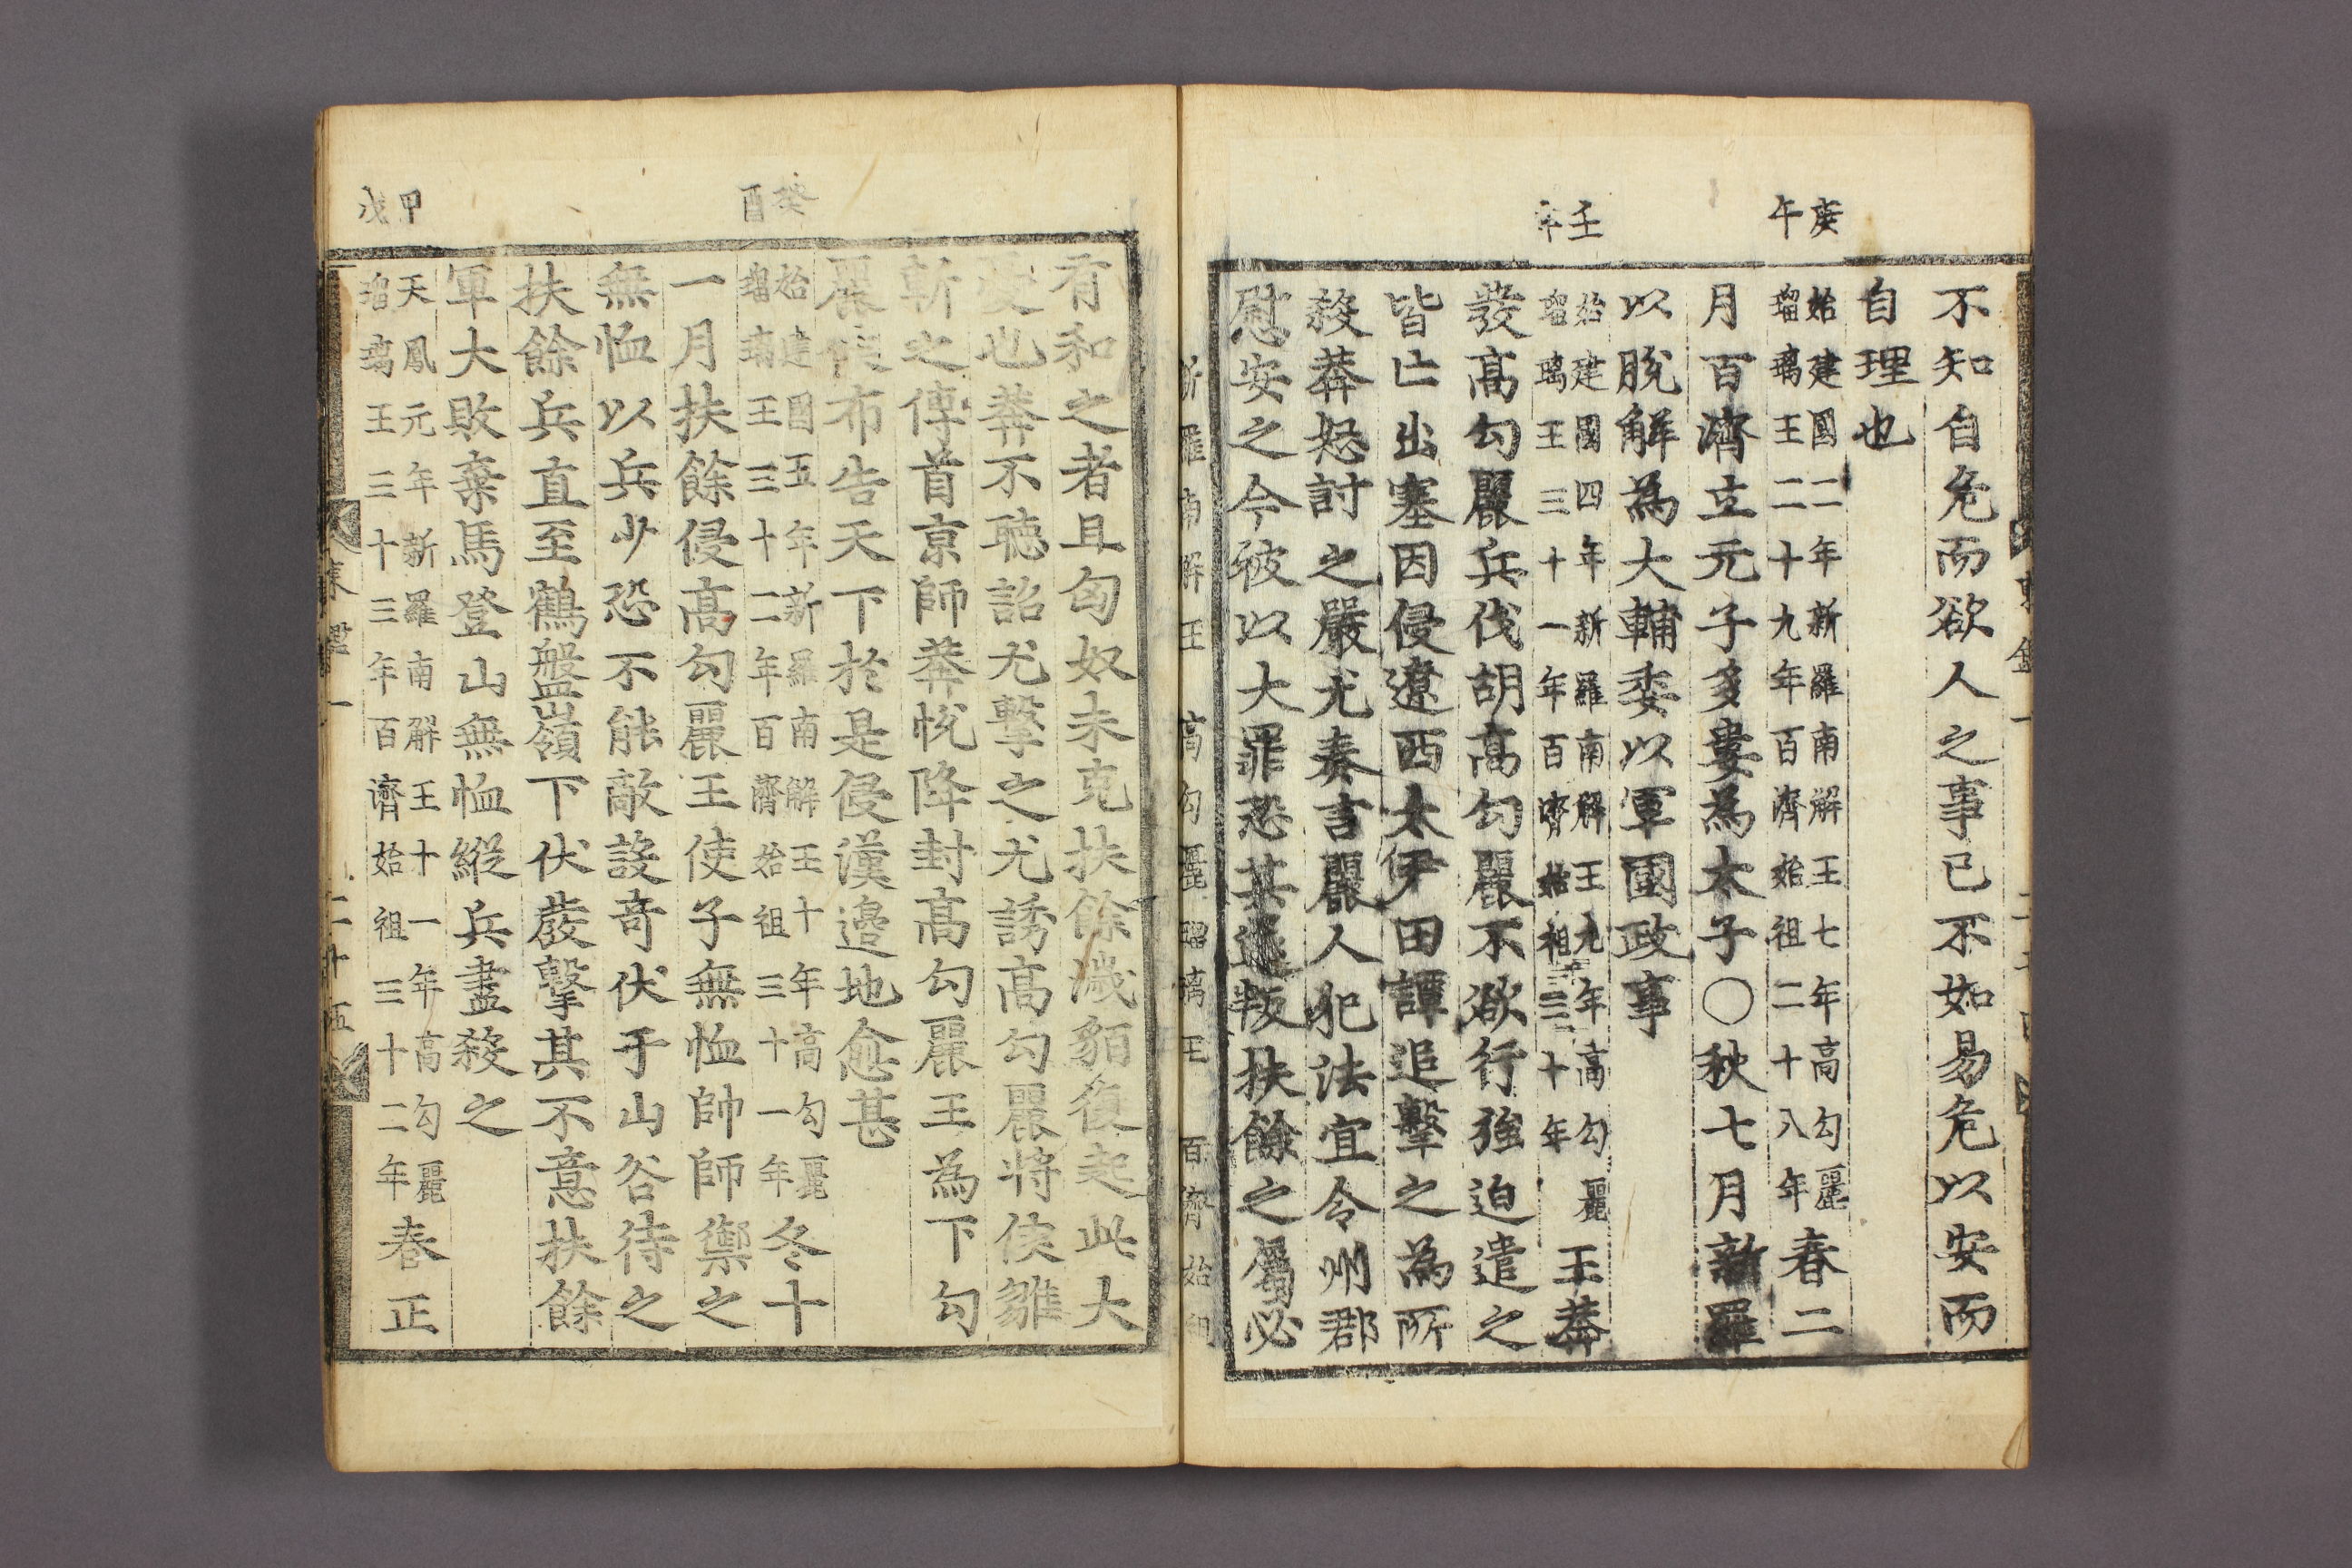 庚午
壬申
不知自危而欲人之事已不如易危以安而
自理也
始建國二年新羅南解王七年高勾麗
瑠璃王二十九年百濟始祖二十八年春二
月百濟立元子多婁為太子○秋七月新羅
以脫解為大輔委以軍國政事
始建國四年新羅南解王九年高勾麗
瑠璃王三十一年百濟始祖三十年王莽
發高勾麗兵伐胡高勾麗不欲行強迫遣之
皆亡出塞因侵遼西大尹田譚追擊之為所
殺莽怒討之嚴尤奏言麗人犯法宜令州郡
慰安之今彼以大罪恐其遂叛扶餘之屬必
新羅南解王 高勾麗瑠璃王 百濟始祖
癸酉
甲戌
有和之者且匈奴未克扶餘濊貊復起此大
憂也莽不聽詔尤擊之尤誘高勾麗將侯雛
斬之傳首京師莽悅降封高勾麗王為下勾
麗侯布告天下於是侵漢邊地愈甚
始建國五年新羅南解王十年高勾麗
瑠璃王三十二年百濟始祖三十一年冬十
一月扶餘侵高勾麗王使子無恤帥師禦之
無恤以兵少恐不能敵設奇伏于山谷待之
扶餘兵直至鶴盤嶺下伏發擊其不意扶餘
軍大敗棄馬登山無恤縱兵盡殺之
天鳳元年新羅南解王十一年高勾麗
瑠璃王三十三年百濟始祖三十二年春正
二十五